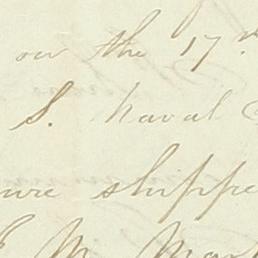 on the 17
S. Naval
ure shippe
E. M. Mar